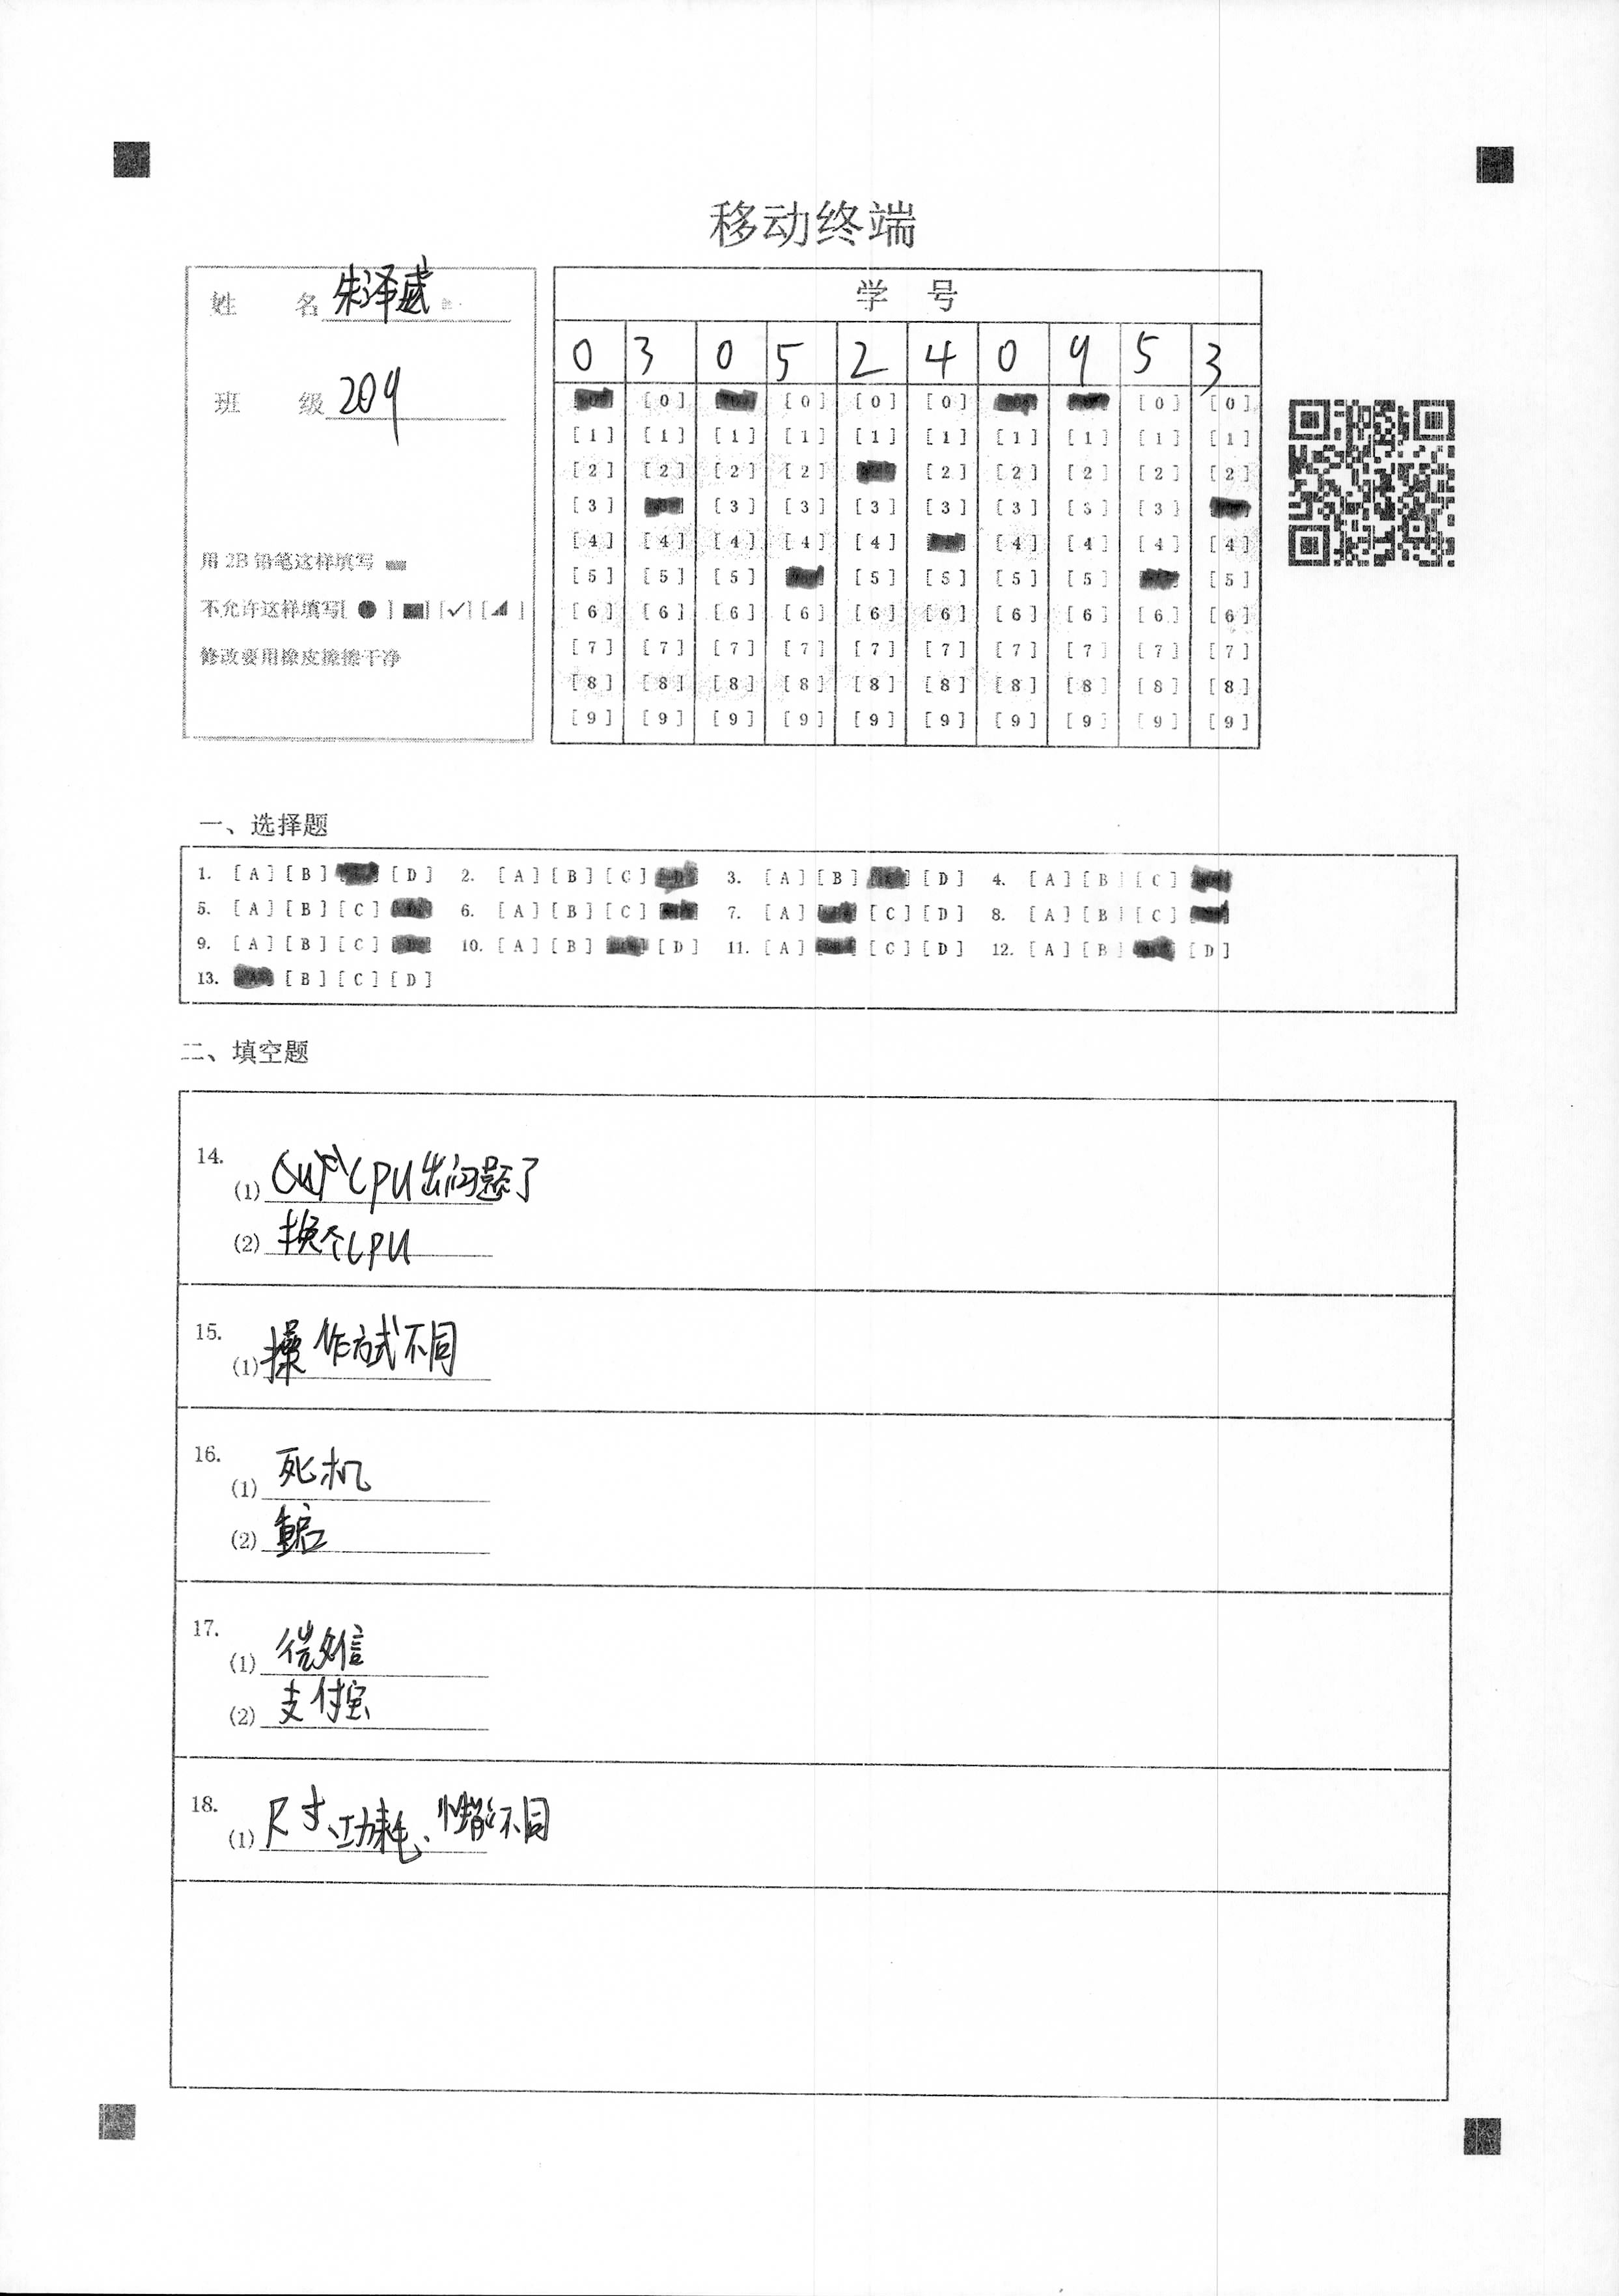 移动终端
姓 名 朱泽盛
班 级 209
用2B铅笔这样填写
不允许这样填写[ ● ] [■] [✓] [◢ ]
修改要用橡皮擦擦干净
学 号
0 3 0 5 2 4 0 9 5 3
[0] [0] [0] [0] [0] [0]
[1] [1] [1] [1] [1] [1] [1] [1] [1] [1]
[2] [2] [2] [2] [2] [2] [2] [2] [2]
[3] [3] [3] [3] [3] [3] [3] [3]
[4] [4] [4] [4] [4] [4] [4] [4] [4]
[5] [5] [5] [5] [5] [5] [5] [5]
[6] [6] [6] [6] [6] [6] [6] [6] [6] [6]
[7] [7] [7] [7] [7] [7] [7] [7] [7] [7]
[8] [8] [8] [8] [8] [8] [8] [8] [8] [8]
[9] [9] [9] [9] [9] [9] [9] [9] [9] [9]
一、选择题
1. [A] [B] [D] 2. [A] [B] [C] 3. [A] [B] [D] 4. [A] [B] [C]
5. [A] [B] [C] 6. [A] [B] [C] 7. [A] [C] [D] 8. [A] [B] [C]
9. [A] [B] [C] 10. [A] [B] [D] 11. [A] [C] [D] 12. [A] [B] [D]
13. [B] [C] [D]
二、填空题
14.
(1) CPU出问题了
(2) 换个CPU
15.
(1) 操作方式不同
16.
(1) 死机
(2) 重启
17.
(1) 微信
(2) 支付宝
18.
(1) 尺寸、功耗、性能不同